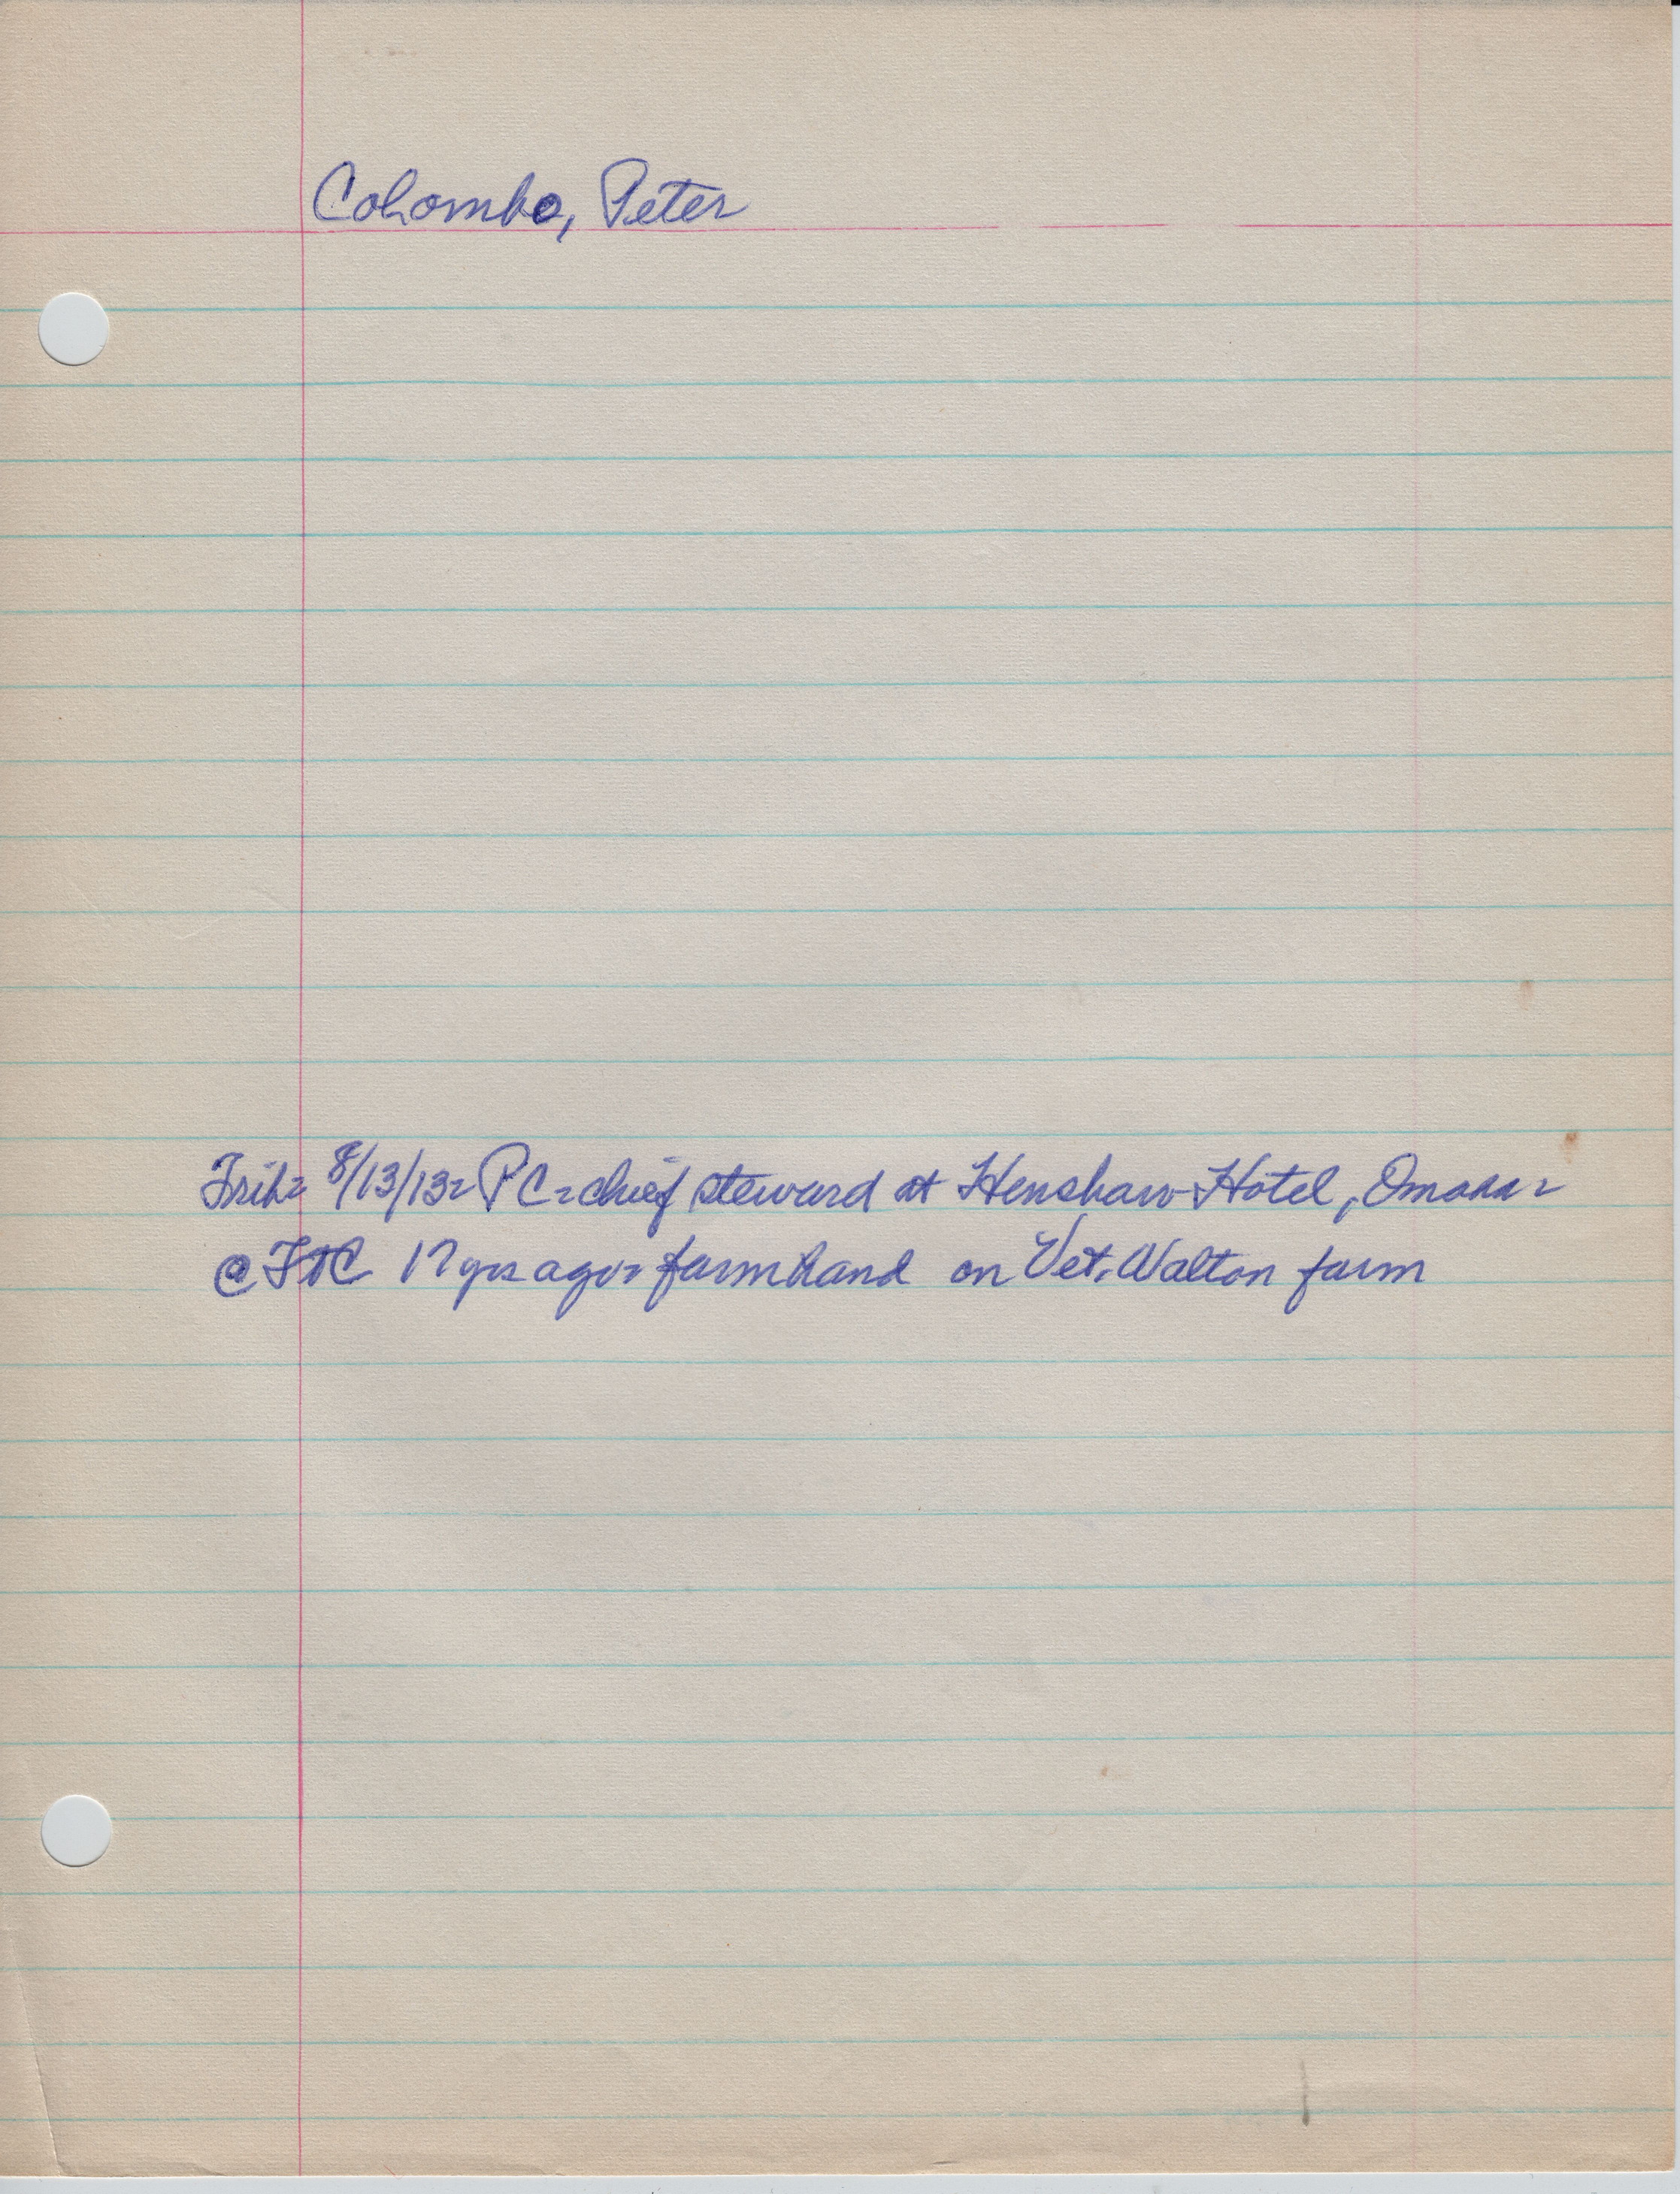 Colombo, Peter
Trib= 8/13/13= PC=chief steward at Henshaw Hotel, Omaha=
@ FtC 17 yrs ago= farmhand on Vet. Walton farm